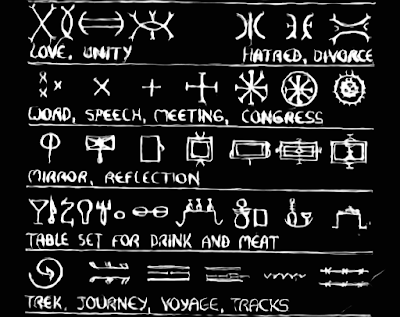 LOVE, UNITY HATRED, DIVORCE
WORD, SPEECH, MEETING, CONGRESS
MIRROR, REFLECTION
TABLE SET FOR DRINK AND MEAT
TREK, JOURNEY, VOYAGE, TRACKS